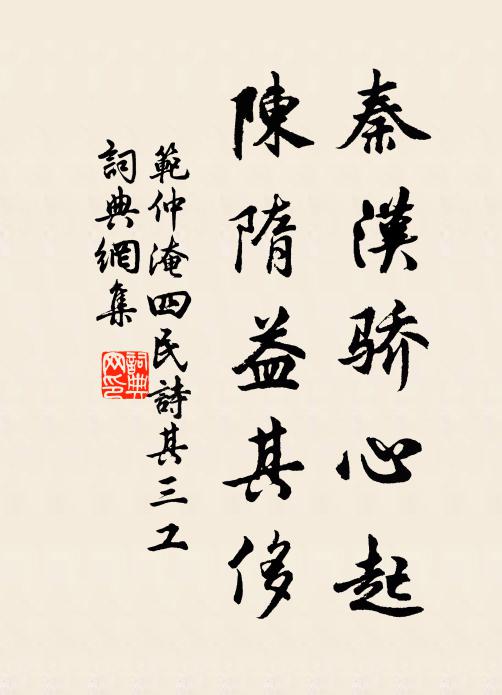 秦漢骄心起
陳隋益其侈
範仲淹四民詩其三工
詞典網集
詞典
网印